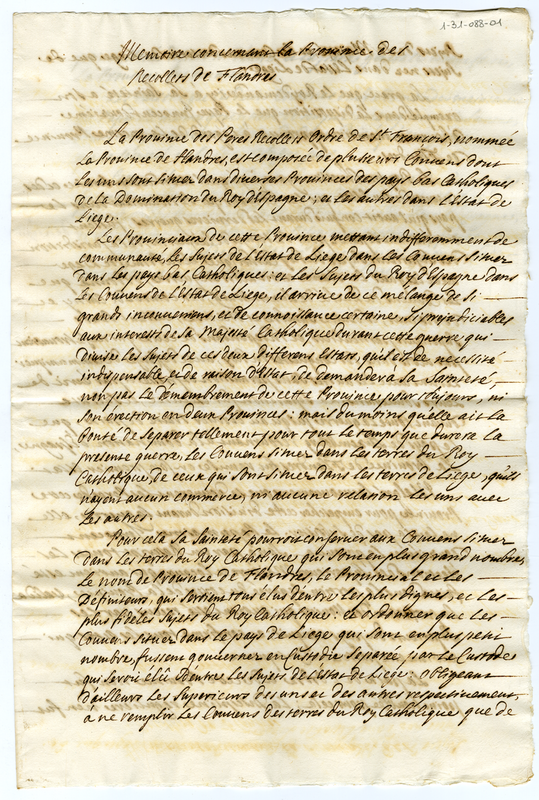 1-31-088-01
Memoire concernant la Province des
Recollets de Flandres
La Province des Peres Recollets Ordre de St. François, nommée
La Province de Flandres, est composée de plusieurs Couvens dont
Les uns sont situez dans diverses Provinces des pays bas Catholiques
de la Domination du Roy d'Espagne; et les autres dans l'Estat de
Liege.
Les Provinciaux de cette Province mettant indifferamment de
communauté, les Sujets de l'Estat de Liege dans les Couvens situez
dans les pays bas Catholiques: et les Sujets du Roy d'Espagne dans
les Couvens de l'Estat de Liege, il arrive de ce mélange de si
grands inconveniens, et de connoissance certaine, si prejudiciables
aux interests de sa Majesté Catholique durant cette guerre, qui
divise les Sujets de ces deux differens Estats, qu'il est de necessité
indispensable, et de raison d'Estat, de demander à sa Sainteté,
non pas le démembrement de cette Province pour toujours, ni
son erection en deux Provinces: mais du moins qu'elle ait la
bonté de separer tellement, pour tout le temps que durera la
presente guerre, les Couvens situez dans les terres du Roy
Catholique, de ceux qui sont situez dans les terres de Liege, qu'ils
n'ayent aucun commerce, ni aucune relation les uns avec
les autres.
Pour cela sa Sainteté pourroit conserver aux Couvens situez
dans les terres du Roy Catholique qui sont en plus grand nombre,
le nom de Province de Flandres, le Provincial et les
Définiteurs, qui seroient tous élus d'entre les plus dignes, et les
plus fideles Sujets du Roy Catholique: et ordonner que les
Couvens situez dans le pays de Liege qui sont en plus petit
nombre, fussent gouvernez en Custodie separée, par le Custode
qui seroit élû d'entre les Sujets de l'Estat de Liege: obligeant
d'ailleurs les Superieurs des uns et des autres respectivement,
a ne remplir les Couvens des terres du Roy Catholique que de